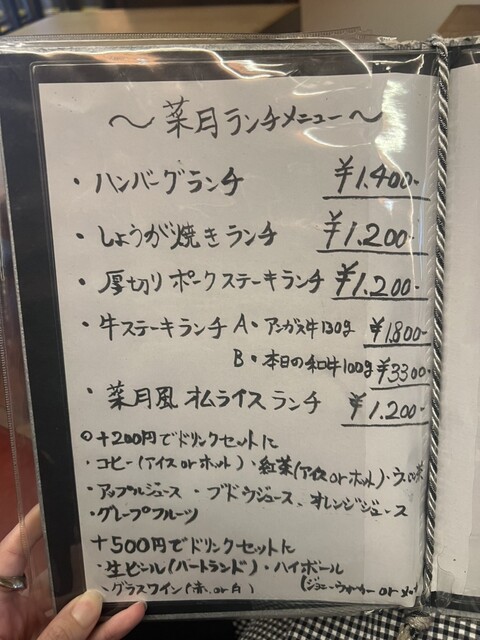 ～菜月ランチメニュー～
・ハンバーグランチ ¥1.400-
・しょうが焼きランチ ¥1.200-
・厚切りポークステーキランチ ¥1.200-
・牛ステーキランチ A・アンガス牛130g ¥1.800-
B・本日の和牛100g ¥3300-
・菜月風オムライスランチ ¥1.200-
○+200円でドリンクセットに
・コピー(アイスorホット)・紅茶(アイスorホット)・ウーロン茶
・アップルジュース ・ブドウジュース、オレンジジュース
・グレープフルーツ
+500円でドリンクセットに
・生ビール(ハートランド)・ハイボール
(ジョニーウォーカー or
・グラスワイン(赤.or白)